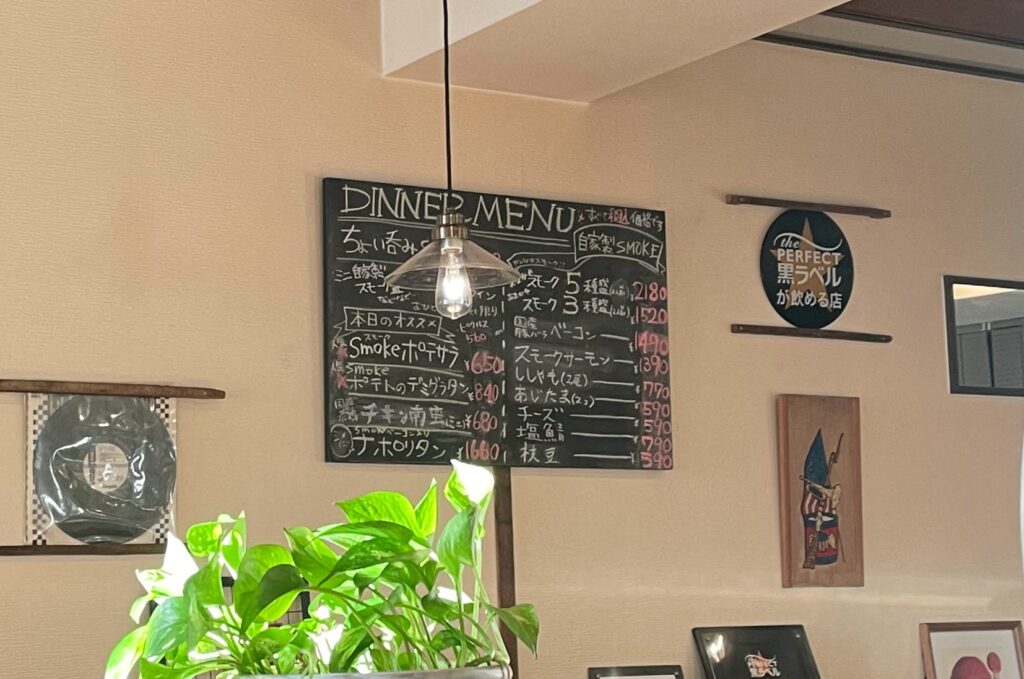 DINNER MENU
※すべて税込価格です
ちょい呑み
ミニ自家製
スモーク
などなど
本日のオススメ
560
人気 スモーク
Smokeポテサラ ¥650
人気 smoke
ポテトのデミグラタン ¥840
国産
チキン南蛮(ミニ) ¥680
smokeベーコン入り
ナポリタン ¥1660
自家製SMOKE
スモーク5種盛 ¥2180
スモーク3種盛 ¥1520
国産
豚バラベーコン ¥1490
スモークサーモン ¥1390
ししゃも(2尾) ¥770
あじたま(2コ) ¥590
チーズ ¥590
塩鯖 ¥790
枝豆 ¥590
the
PERFECT
黒ラベル
が飲める店
PERFECT
黒ラベル